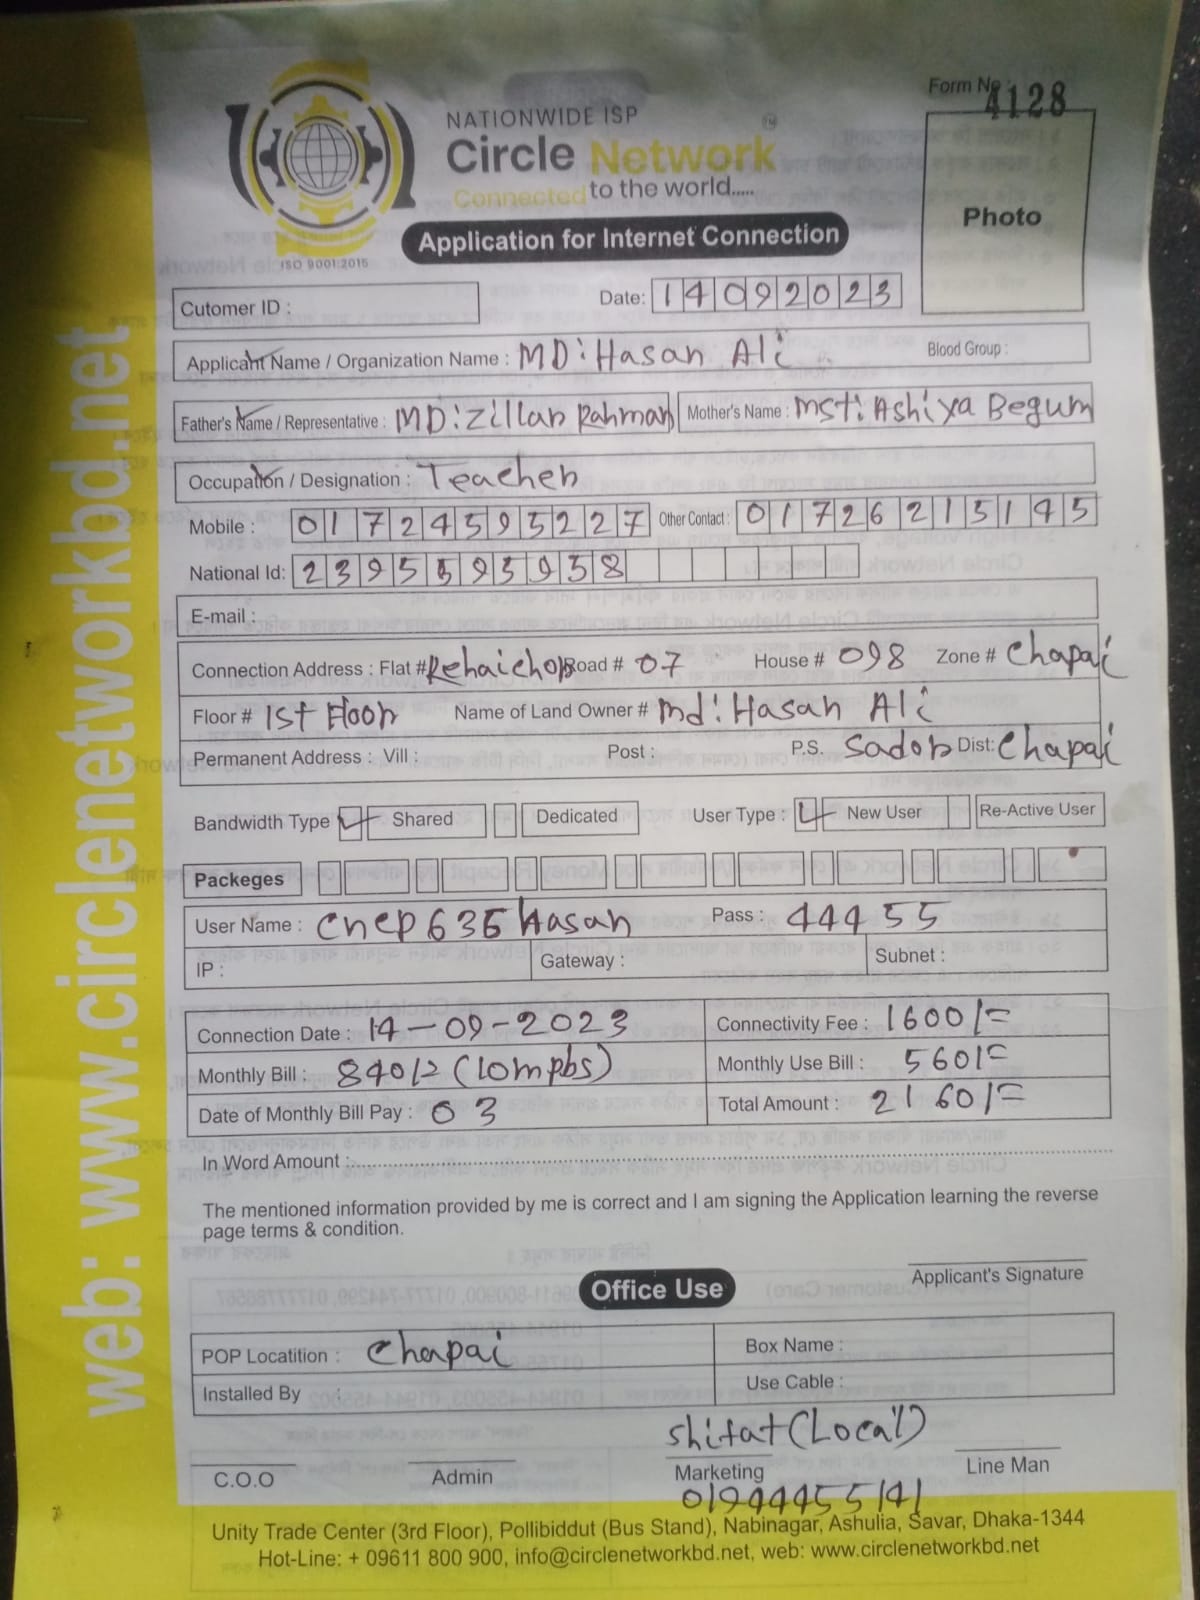 Form No : 4128
NATIONWIDE ISP
Circle Network
Connected to the world.....
ISO 9001:2015
Application for Internet Connection
Photo
Cutomer ID :
Date: 14092023
Applicant Name / Organization Name : MD: Hasan Ali
Blood Group :
Father's Name / Representative : MD: Zillar Rahman
Mother's Name : Mst: Ashiya Begum
Occupation / Designation : Teacher
Mobile : 01724595227
Other Contact : 01726215145
National Id: 2395595958
E-mail :
Connection Address : Flat # Rehaichor Road # 07 House # 098 Zone # Chapai
Floor # 1st Floor Name of Land Owner # Md: Hasan Ali
Permanent Address : Vill : Post : P.S. Sador Dist: Chapai
Bandwidth Type Shared Dedicated User Type : New User Re-Active User
Packeges
User Name : cncp636Hasan Pass : 44455
IP : Gateway : Subnet :
Connection Date : 14-09-2023 Connectivity Fee : 1600/=
Monthly Bill : 840/= (10mpbs) Monthly Use Bill : 560/=
Date of Monthly Bill Pay : 03 Total Amount : 2160/=
In Word Amount :
The mentioned information provided by me is correct and I am signing the Application learning the reverse
page terms & condition.
Applicant's Signature
Office Use
POP Locatition : Chapai Box Name :
Installed By : Use Cable :
Shifat (Local)
C.O.O Admin Marketing Line Man
01944455141
Unity Trade Center (3rd Floor), Pollibiddut (Bus Stand), Nabinagar, Ashulia, Savar, Dhaka-1344
Hot-Line: + 09611 800 900, info@circlenetworkbd.net, web: www.circlenetworkbd.net
web: www.circlenetworkbd.net